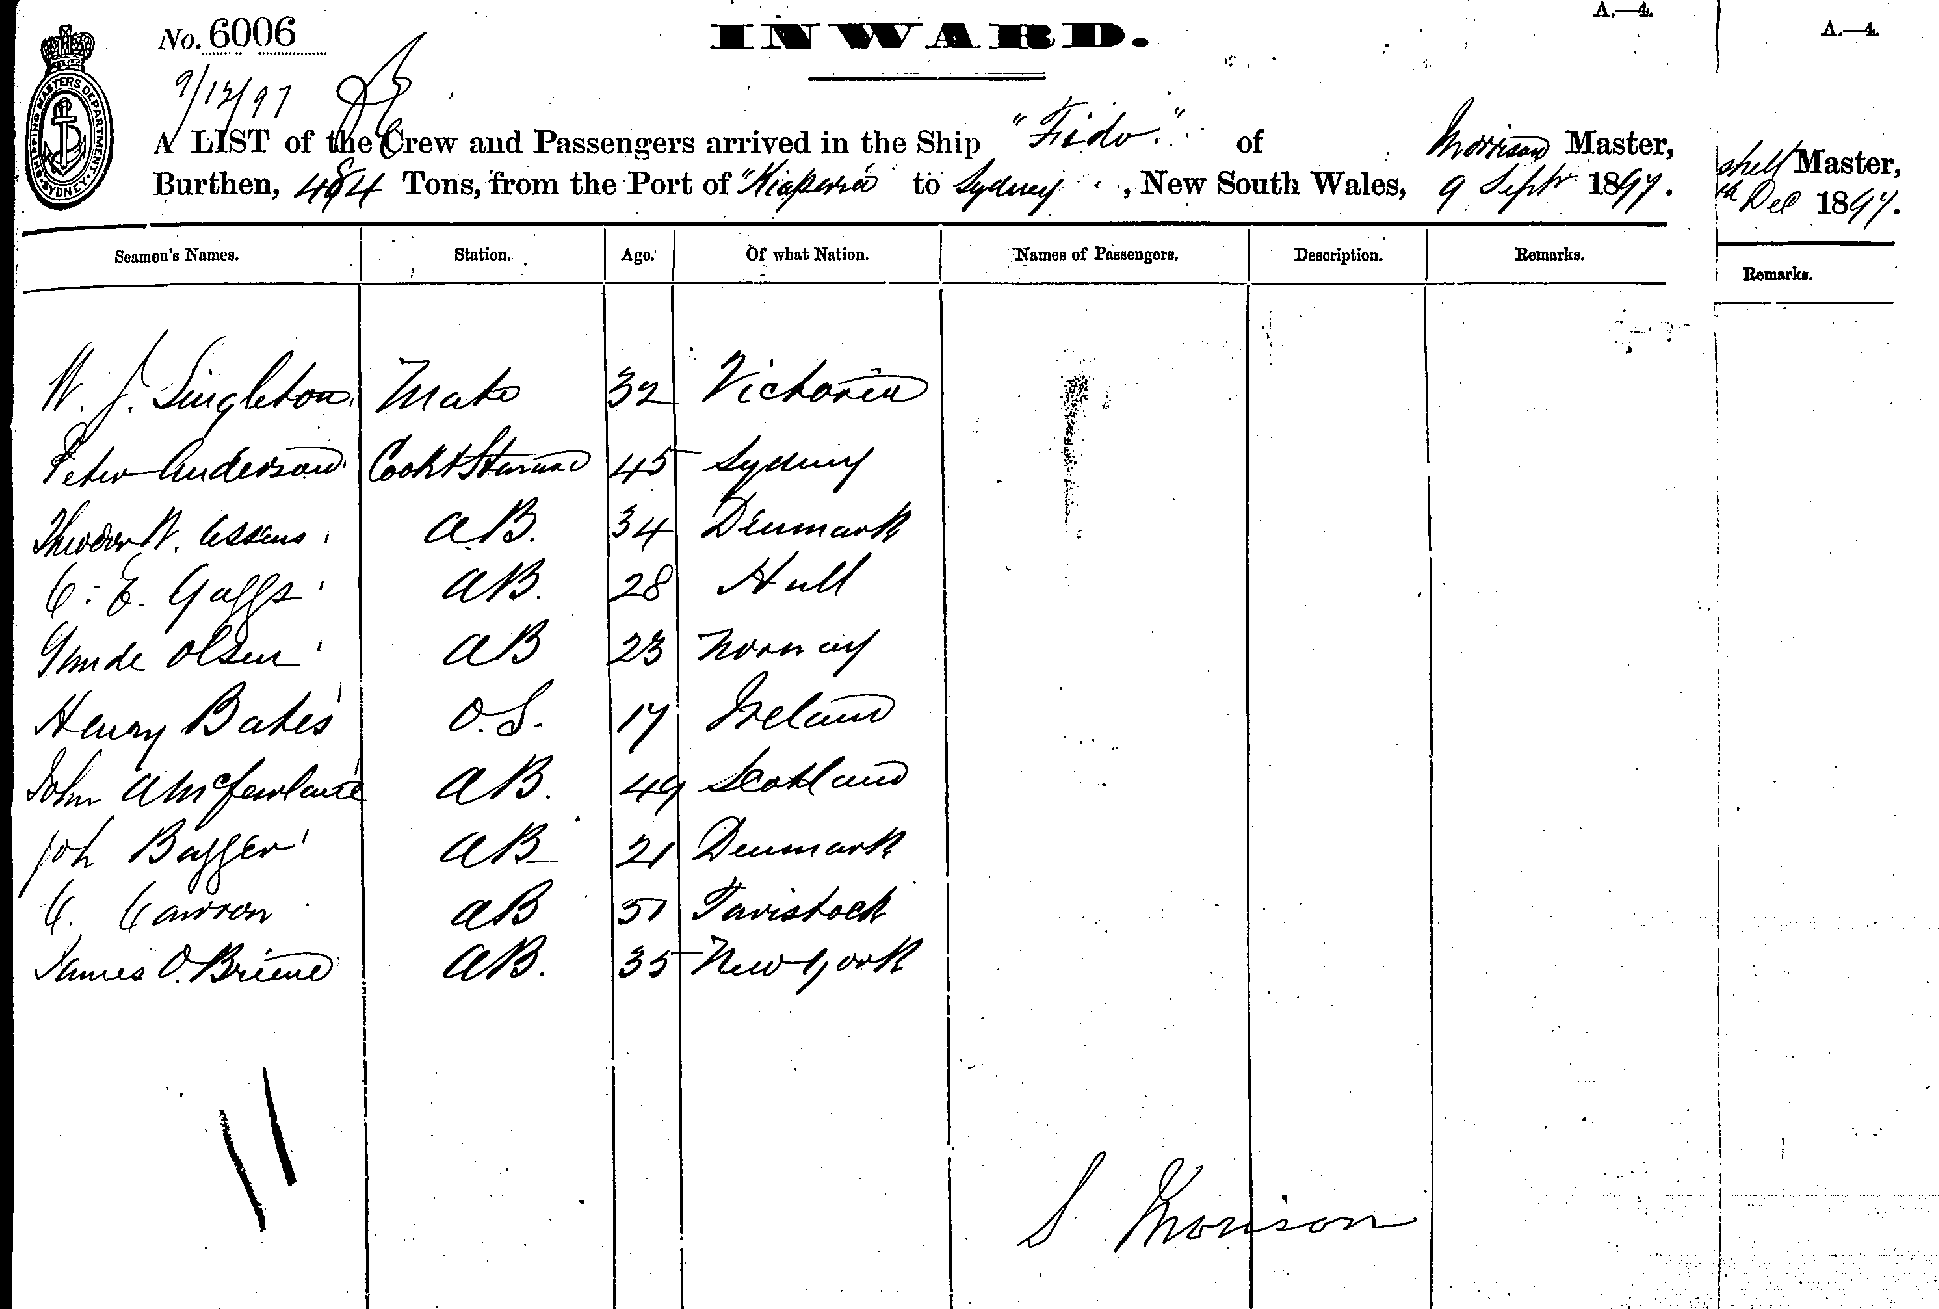 No. 6006
INWARD.
A.—4.
A.—4.
9/12/97
SHIPPING MASTERS DEPARTMENT SYDNEY
A LIST of the Crew and Passengers arrived in the Ship "Fido." of Morrison Master,
Burthen, 484 Tons, from the Port of to Sydney, New South Wales, 9 Septr 1897.
Master,
Dec 1897.
Seamen's Names. Station. Age. Of what Nation. Names of Passengers. Description. Remarks.
Remarks.
W. J. Singleton Mate 32 Victoria
Peter Anderson Cook & Steward 45 Sydney
A.B. 34 Denmark
C. E. Gaggs AB. 28 Hull
Olsen AB 23 Norway
Henry Bates O.S. 17 Ireland
John A McFarlane AB. 49 Scotland
Joh Bagger AB 21 Denmark
C. AB 51 Tavistock
James O.Briene AB. 35 New York
11
S Morison